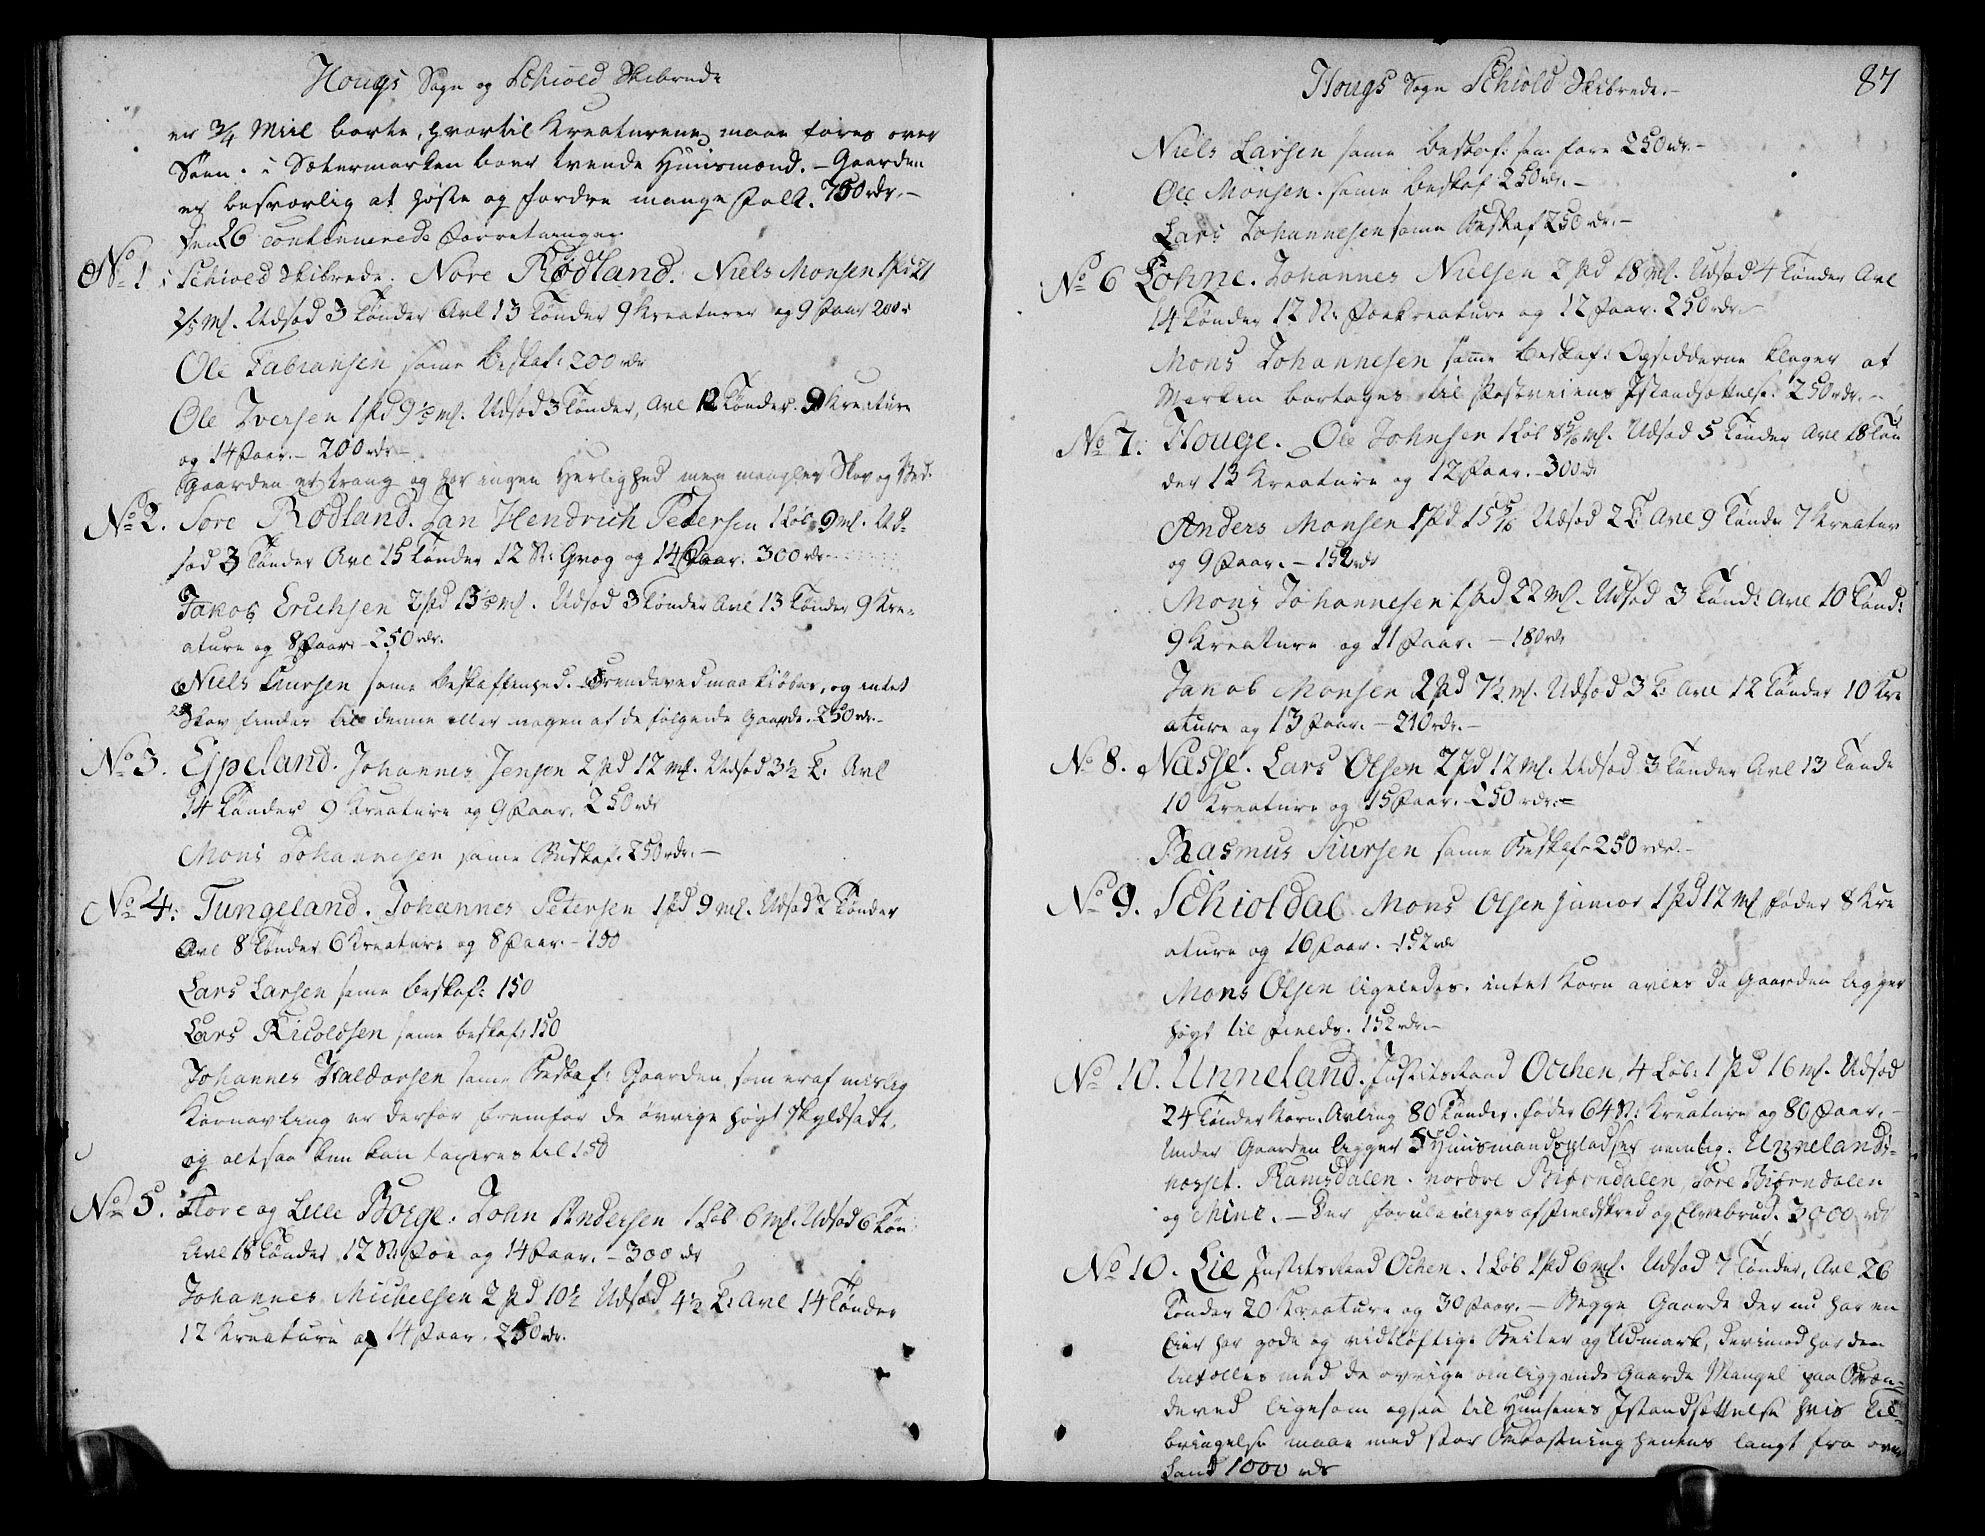 Hougs Sogn og Schiold Skibrede
er 3/4 Miil borte, hvortil Kreaturene maae føres over
Søen. i Sætermarken boer tvende Huusmænd. – Gaarden
er besværlig at høste og fordre mange Folk. 750 rdr. –
Den 26 continuerede Forretningen
No 1. i Schiold Skibrede. Nore Rødland. Niels Monsen 1 pd 21
2/5 ml. Udsæd 3 Tønder Avl 13 Tønder 9 Kreaturer og 9 Faar 200 r
Ole Fabiansen same Beskaf: 200 rdr
Ole Iversen 1 pd 9 1/5 ml. Udsæd 3 Tønder, Avl 12 Tønder. 9 Kreature
og 14 Faar. – 200 rdr –
Gaarden er trang og har ingen Herlighed men mangler Skov og Ved.
No 2. Søre Rødland. Jan Hendrich Petersen 1 Løb 9 ml. Ud-
sæd 3 Tønder Avl 15 Tønder 12 St: og 14 Faar. 300 rdr
Jakob Erichsen 2 pd 13 1/2 ml. Udsæd 3 Tønder Avl 13 Tønder 9 Kre-
ature og 8 Faar – 250 rdr.
Niels Knursen same Beskaffenhed. – Brendeved maa kiøbes, og intet
Skov findes til denne eller nogen af de følgende Gaarde. 250 rdr. –
No 3. Espeland. Johannes Jensen 2 pd 12 ml. Udsæd 3 1/2 T. Avl
14 Tønder 9 Kreature og 9 Faar. 250 rdr
Mons Johannesen same Beskaf. 250 rdr. –
No 4. Tungeland. Johannes Petersen 1 pd 9 ml. Udsæd 2 Tønder
Avl 8 Tønder 6 Kreature og 8 Faar – 150
Lars Larsen same Beskaf: 150
Lars Nicolosen same beskaf: 150
Johannes Haldorsen same Beskaf: Gaarden som er af mislig
Kornavling er derfor fremfor de øvrige høyt skyldsadt,
og altsaa kun kan taxeres til 150
No 5. Store og Lille Borge. John Andersen 1 Løb 6 ml. Udsæd 6 Tøn:
Avl 18 Tønder, 12 St: Føe og 14 Faar. – 300 dr
Johannes Michelsen 2 pd 10 1/2 Udsæd 4 1/2 T: Avl 14 Tønder
12 Kreature og 14 Faar. 250 rdr.
Hougs Sogn Schiold Skibrede. –
87
Niels Larsen same Beskaf: som fore 250 rdr. –
Ole Monsen. same Beskaf 250 rdr. –
Lars Johannesen same Beskaf 250 rdr. –
No 6 Lohne. Johannes Nielsen 2 pd 18 ml. Udsæd 4 Tønder Avl
14 Tønder 12 St: Føekreature og 12 Faar. 250 rdr –
Mons Johannesen same Beskaf: Opsidderne klager at
Marken bortages til Postveiens Istandsættelse: 250 rdr. –
No 7. Houge. Ole Johnsen 1 Løb 8 5/16 ml. Udsæd 5 Tønder Avl 18 Tøn
der 13 Kreature og 12 Faar. – 300 r
Anders Monsen 1 pd. 15 5/16 Udsæd 2 T: Avl 9 Tønde 7 Kreatur
og 9 Faar. – 152 rdr
Mons Johannesen 1 pd 22 ml. Udsæd 3 Tønd: Avl 10 Tønd:
9 Kreature og 11 Faar. – 180 rdr
Jakob Monsen 2 pd 7 1/2 ml. Udsæd 3 T: Avl 12 Tønder 10 Kre
ature og 13 Faar. – 210 rdr. –
No 8. Næsse. Lars Olsen 2 pd 12 ml. Udsæd 3 Tønder Avl 13 Tønde
10 Kreature og 15 Faar. – 250 rdr. –
Rasmus Knrsen same Beskaf – 250 rdr. –
No 9. Schioldal. Mons Olsen junior 1 pd 12 ml føder 8 Kre
ature og 16 Faar. – 152 rdr
Mons Olsen ligeledes. intet Korn avles da Gaarden ligger
høyt til Fields. 152 rdr. –
No 10. Unneland. Justitsraad Ochen, 4 Løb: 1 pd 16 ml. Udsæd
24 Tønder Korn, Avling 80 Tønder. føder 64 St: Kreature og 80 Faar. –
Under Gaarden ligger 5 Huusmandspladser nemlig. Unnelands-
nosset. Ramsdalen. nordre Biørndalen, søre Biørndalen
og Mine. – Der foruleiliges af Fieldskred og Elvebrud. 3000 rdr
No 10. Lie Justitsraad Ochen. 1 Løb 1 pd 6 ml. Udsæd 7 Tønder, Avl 26
Tønder 20 Kreature og 30 Faar. – Begge Gaarde der nu har en
Eier har gode og vidtløftige Beiter og Udmark, derimod har den
tilfælles med de øvrige omliggende Gaarde Mangel paa Bræn-
deved ligesom ogsaa til Husenes Istandsættelse hvis til-
bringelse maae med stor Bekostning hentes langt fra over
Land 1000 rdr